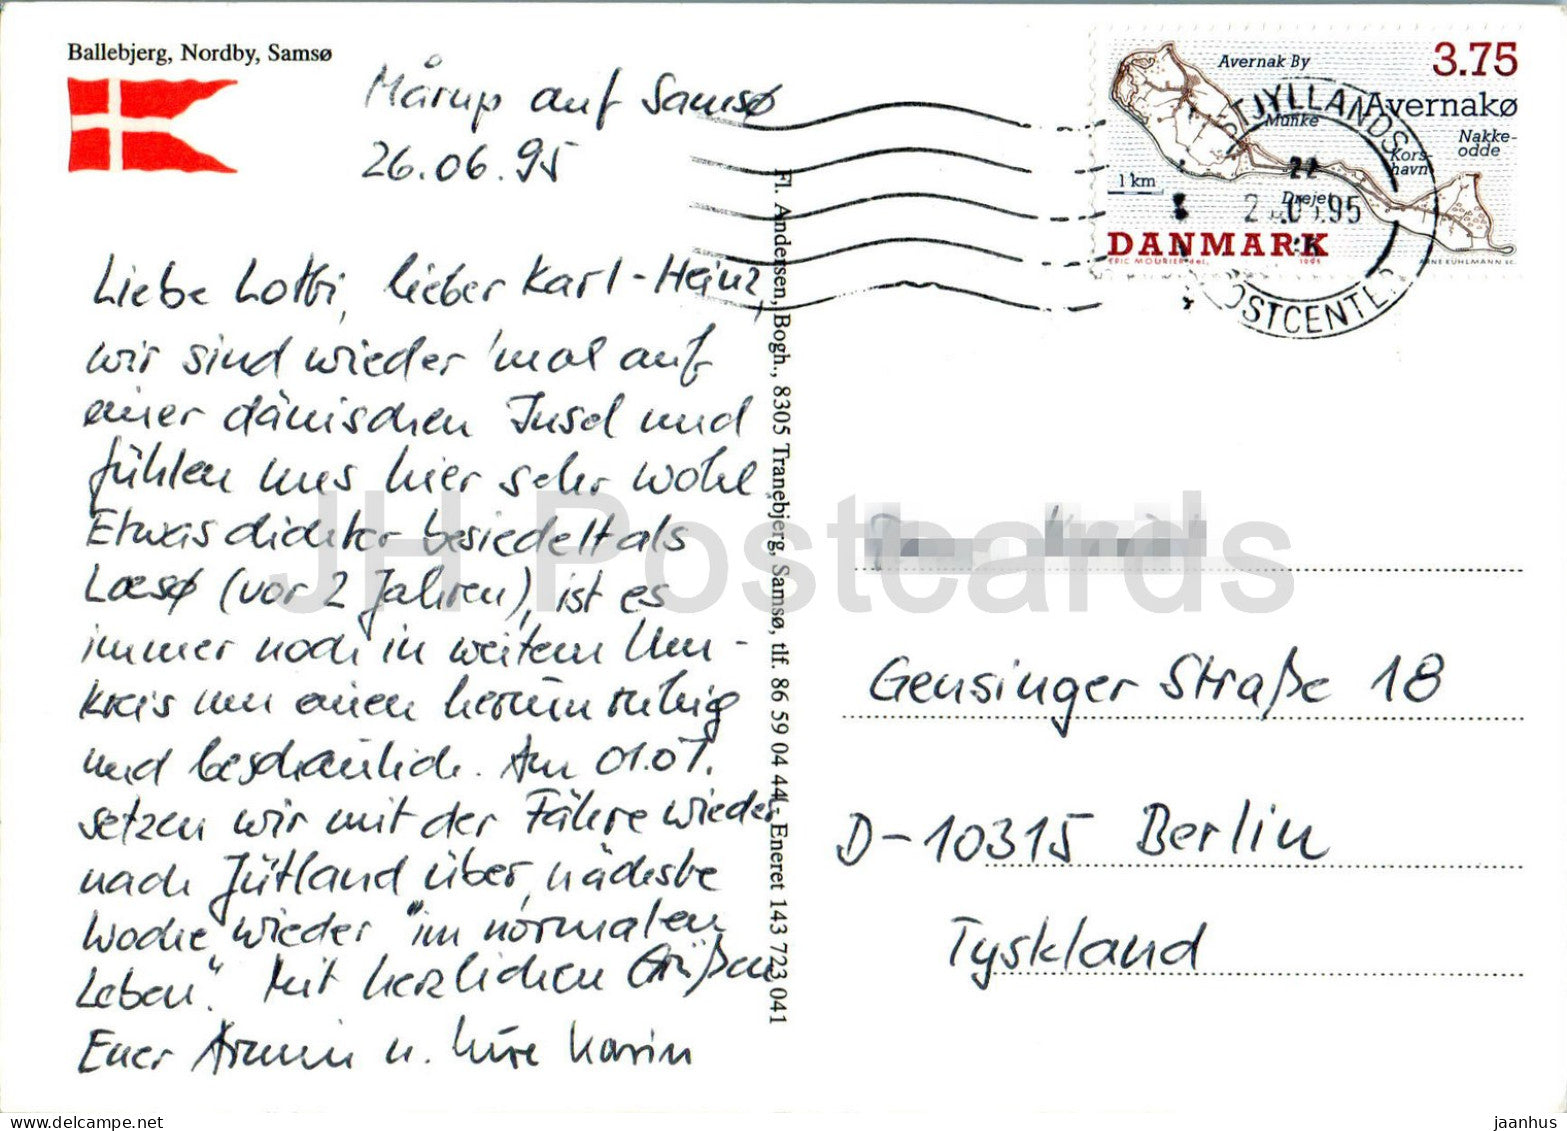 Ballebjerg, Nordby, Samsø
Mårup auf Samsø
26.06.95
Liebe Lotti, lieber Karl-Heinz,
wir sind wieder 'mal auf
einer dänischen Insel und
fühlen uns hier sehr wohl.
Etwas dichter besiedelt als
Læsø (vor 2 Jahren), ist es
immer noch in weitem Um-
kreis um einen herum ruhig
und beschaulich. Am 01.07.
setzen wir mit der Fähre wieder
nach Jütland über, nächste
Woche wieder "im normalen
Leben". Mit herzlichen Grüßen
Euer Armin u. Eure Karin
Fl. Andersen, Bogh., 8305 Tranebjerg, Samsø, tlf. 86 59 04 44. Eneret 143 723 041
3.75
Avernakø
Avernak By
Munke
Nakke-
odde
Kors-
havn
Drejet
1 km
DANMARK
ERIC MOURIER del. 1995 ARNE KÜHLMANN SC.
JYLLANDS
POSTCENTER
.95
Gensinger Straße 18
D-10315 Berlin
Tyskland
JH Postcards
jaanhus